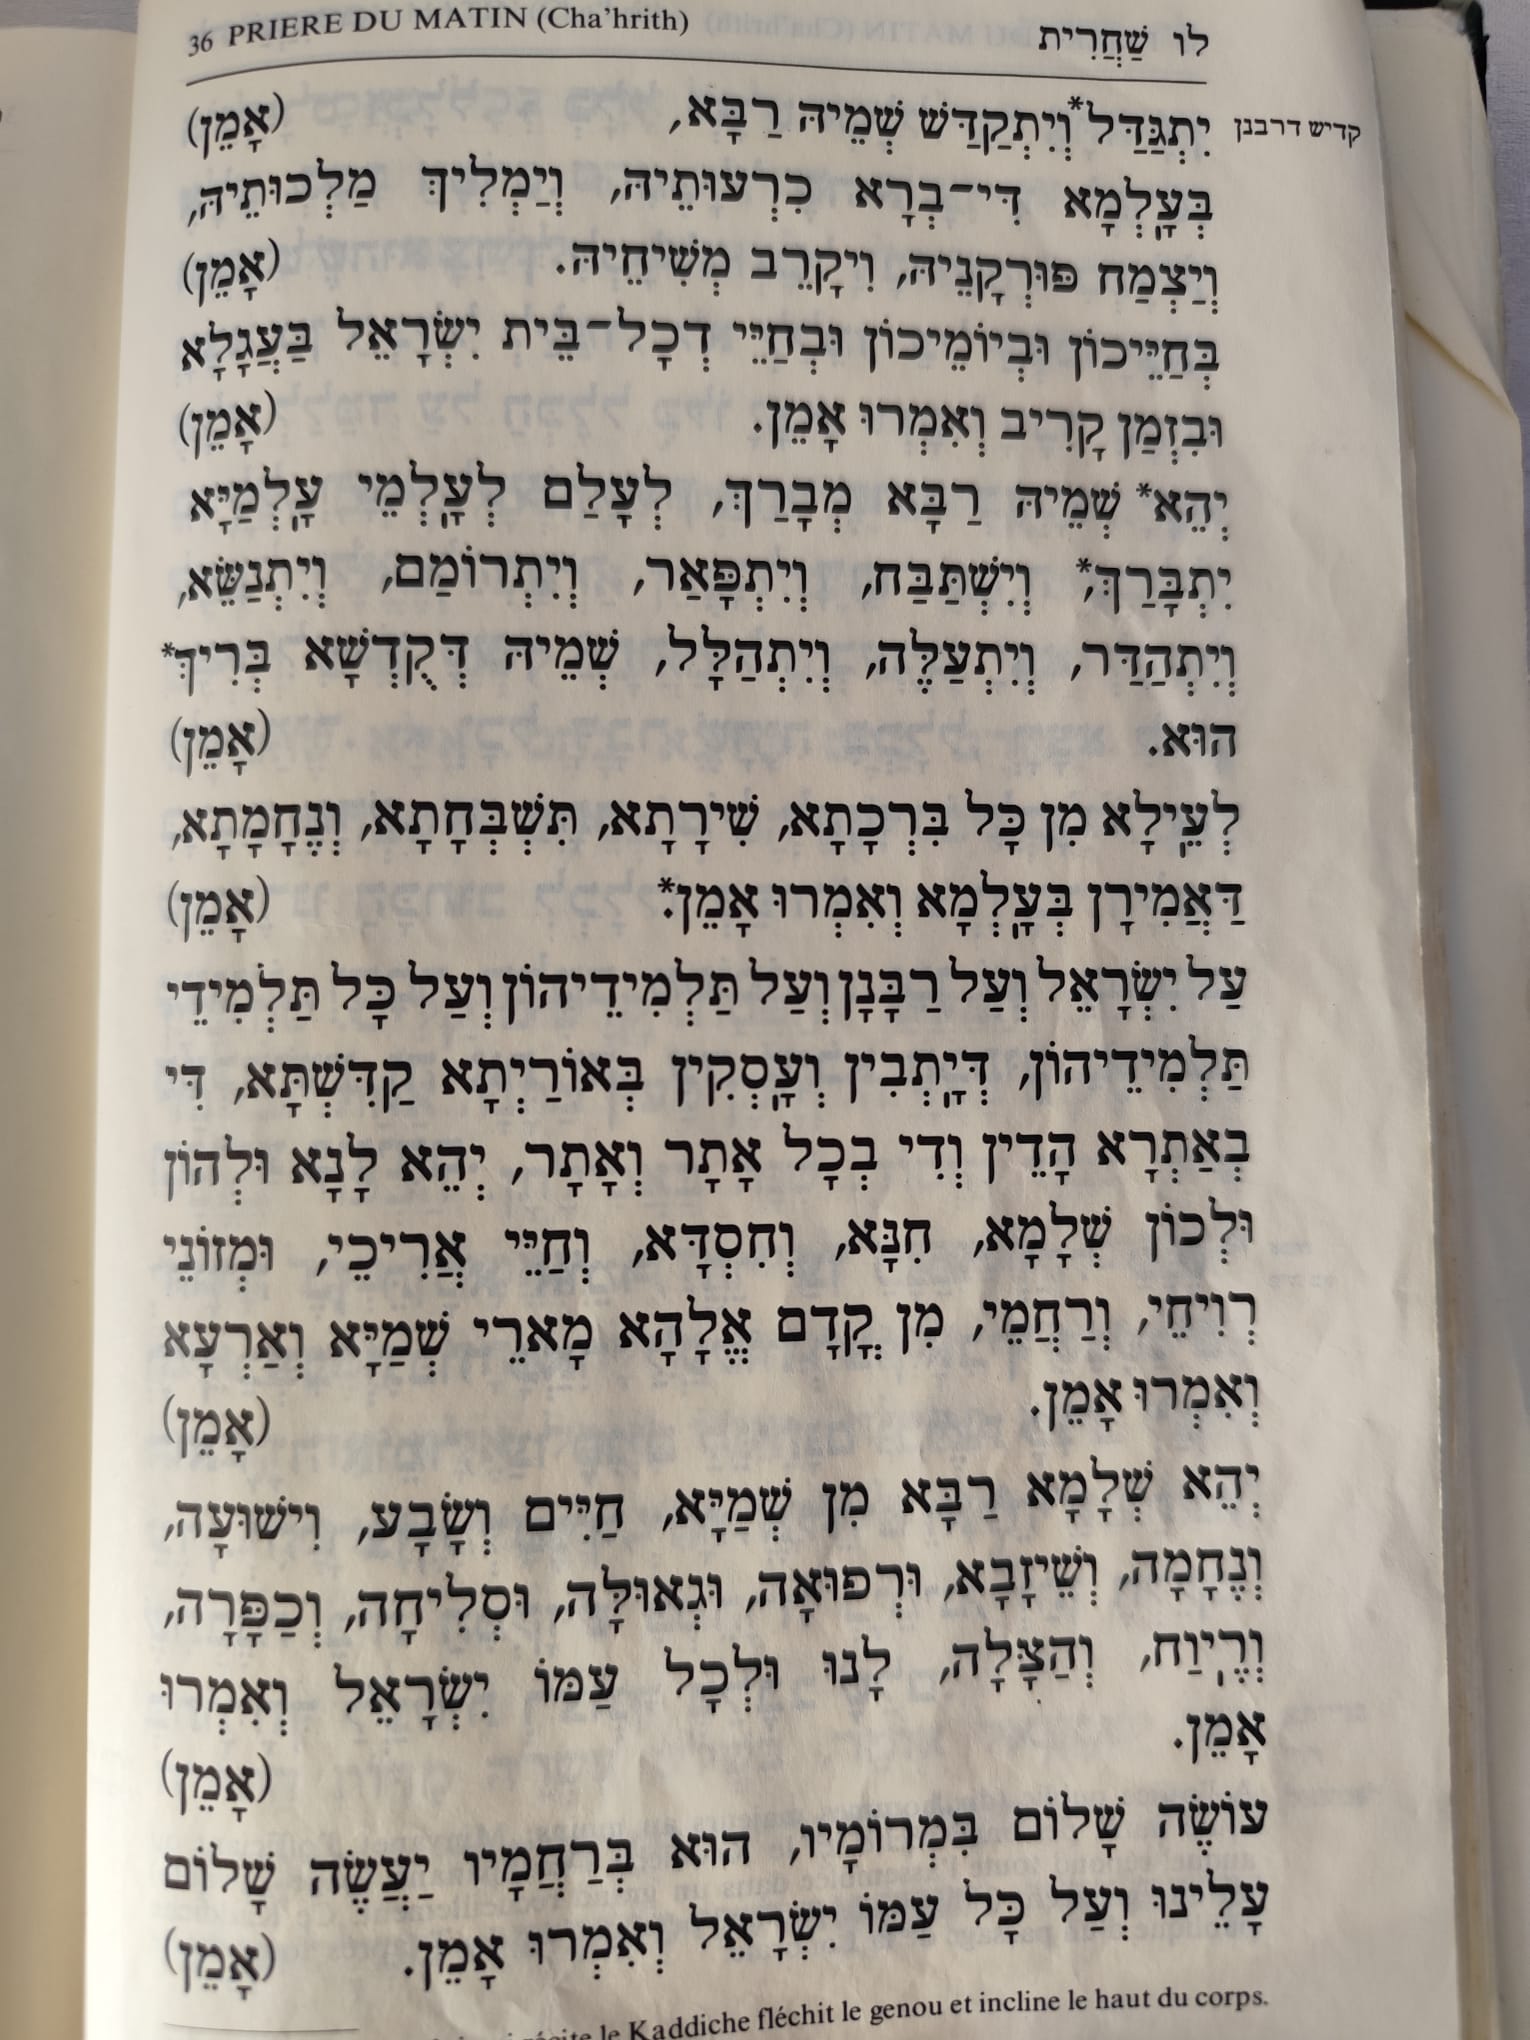 36 PRIERE DU MATIN (Cha'hrith) לו שַׁחֲרִית
קדיש דרבנן
יִתְגַּדַּל* וְיִתְקַדַּשׁ שְׁמֵיהּ רַבָּא, (אָמֵן)
בְּעָלְמָא דִּי־בְרָא כִרְעוּתֵיהּ, וְיַמְלִיךְ מַלְכוּתֵיהּ,
וְיַצְמַח פּוּרְקָנֵיהּ, וִיקָרֵב מְשִׁיחֵיהּ. (אָמֵן)
בְּחַיֵּיכוֹן וּבְיוֹמֵיכוֹן וּבְחַיֵּי דְכָל־בֵּית יִשְׂרָאֵל בַּעֲגָלָא
וּבִזְמַן קָרִיב וְאִמְרוּ אָמֵן. (אָמֵן)
יְהֵא* שְׁמֵיהּ רַבָּא מְבָרַךְ, לְעָלַם לְעָלְמֵי עָלְמַיָּא
יִתְבָּרַךְ,* וְיִשְׁתַּבַּח, וְיִתְפָּאַר, וְיִתְרוֹמַם, וְיִתְנַשֵּׂא,
וְיִתְהַדַּר, וְיִתְעַלֶּה, וְיִתְהַלָּל, שְׁמֵיהּ דְּקֻדְשָׁא בְּרִיךְ*
הוּא. (אָמֵן)
לְעֵילָא מִן כָּל בִּרְכָתָא, שִׁירָתָא, תִּשְׁבְּחָתָא, וְנֶחָמָתָא,
דַּאֲמִירָן בְּעָלְמָא וְאִמְרוּ אָמֵן.* (אָמֵן)
עַל יִשְׂרָאֵל וְעַל רַבָּנָן וְעַל תַּלְמִידֵיהוֹן וְעַל כָּל תַּלְמִידֵי
תַּלְמִידֵיהוֹן, דְּיָתְבִין וְעָסְקִין בְּאוֹרַיְתָא קַדִּשְׁתָּא, דִּי
בְאַתְרָא הָדֵין וְדִי בְכָל אֲתָר וְאֲתָר, יְהֵא לָנָא וּלְהוֹן
וּלְכוֹן שְׁלָמָא, חִנָּא, וְחִסְדָּא, וְחַיֵּי אֲרִיכֵי, וּמְזוֹנֵי
רְוִיחֵי, וְרַחֲמֵי, מִן קֳדָם אֱלָהָא מָארֵי שְׁמַיָּא וְאַרְעָא
וְאִמְרוּ אָמֵן. (אָמֵן)
יְהֵא שְׁלָמָא רַבָּא מִן שְׁמַיָּא, חַיִּים וְשָׂבָע, וִישׁוּעָה,
וְנֶחָמָה, וְשֵׁיזָבָא, וּרְפוּאָה, וּגְאוּלָּה, וּסְלִיחָה, וְכַפָּרָה,
וְרֶיוַח, וְהַצָּלָה, לָנוּ וּלְכָל עַמּוֹ יִשְׂרָאֵל וְאִמְרוּ
אָמֵן. (אָמֵן)
עוֹשֶׂה שָׁלוֹם בִּמְרוֹמָיו, הוּא בְּרַחֲמָיו יַעֲשֶׂה שָׁלוֹם
עָלֵינוּ וְעַל כָּל עַמּוֹ יִשְׂרָאֵל וְאִמְרוּ אָמֵן. (אָמֵן)
récite le Kaddiche fléchit le genou et incline le haut du corps.